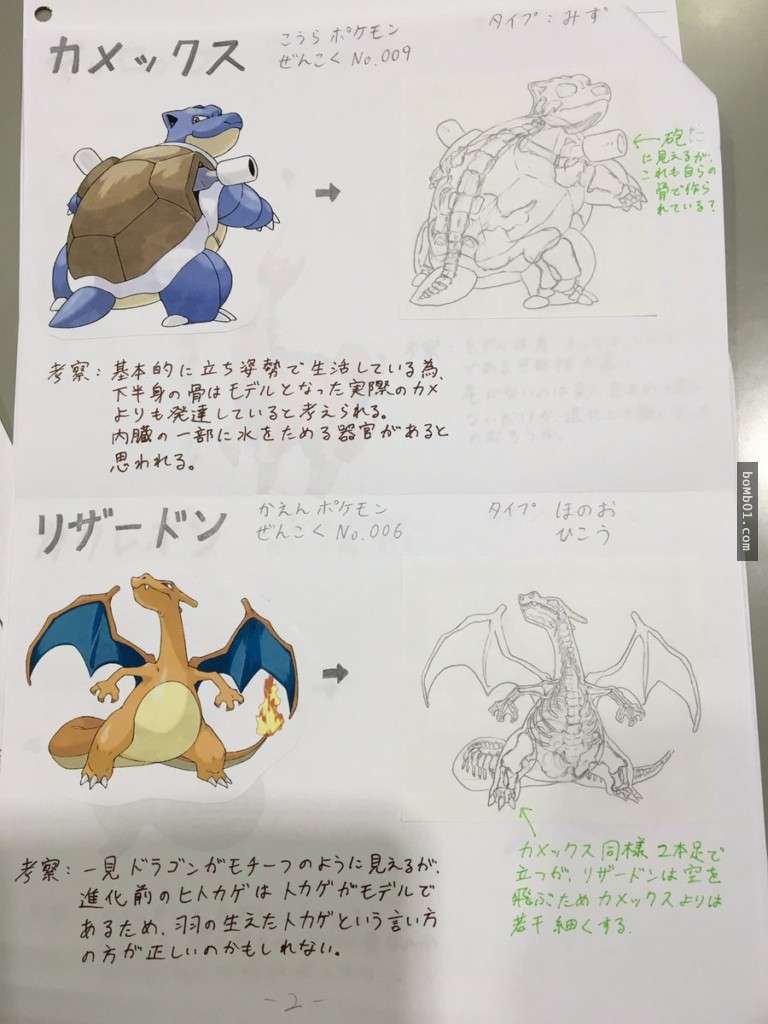 カメックス
こうらポケモン
ぜんこく No.009
タイプ：みず
←砲だ
に見えるが、
これも自らの
骨で作ら
れている？
考察：基本的に立ち姿勢で生活している為、
下半身の骨はモデルとなった実際のカメ
よりも発達していると考えられる。
内臓の一部に水をためる器官があると
思われる。
リザードン
かえんポケモン
ぜんこく No.006
タイプ ほのお
ひこう
カメックス同様2本足で
立つが、リザードンは空を
飛ぶため カメックスよりは
若干細くする.
考察：一見ドラゴンがモチーフのように見えるが、
進化前のヒトカゲはトカゲがモデルで
あるため、羽の生えたトカゲという言い方
の方が正しいのかもしれない。
-2-
bomb01.com